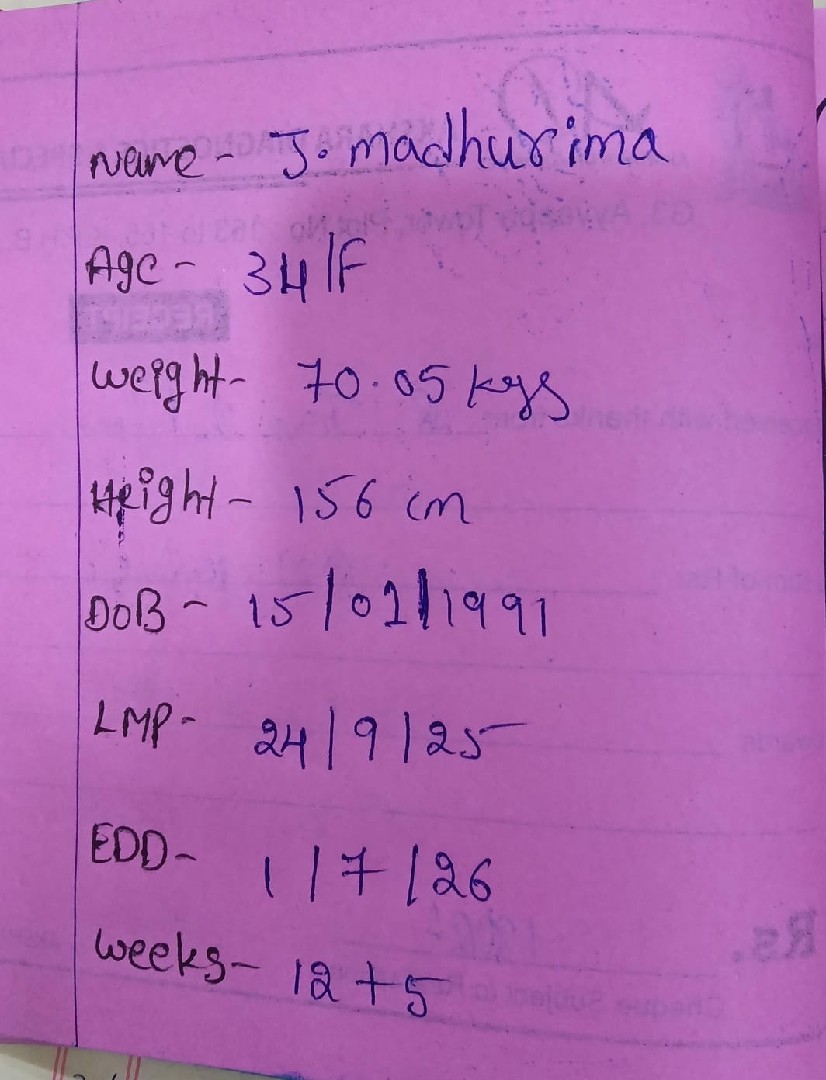 Name - J. madhurima
Age - 34/F
Weight - 70.05 kgs
Height - 156 cm
DOB - 15/01/1991
LMP - 24/9/25
EDD - 1/7/26
Weeks - 12+5
RECEIPT
Rs.